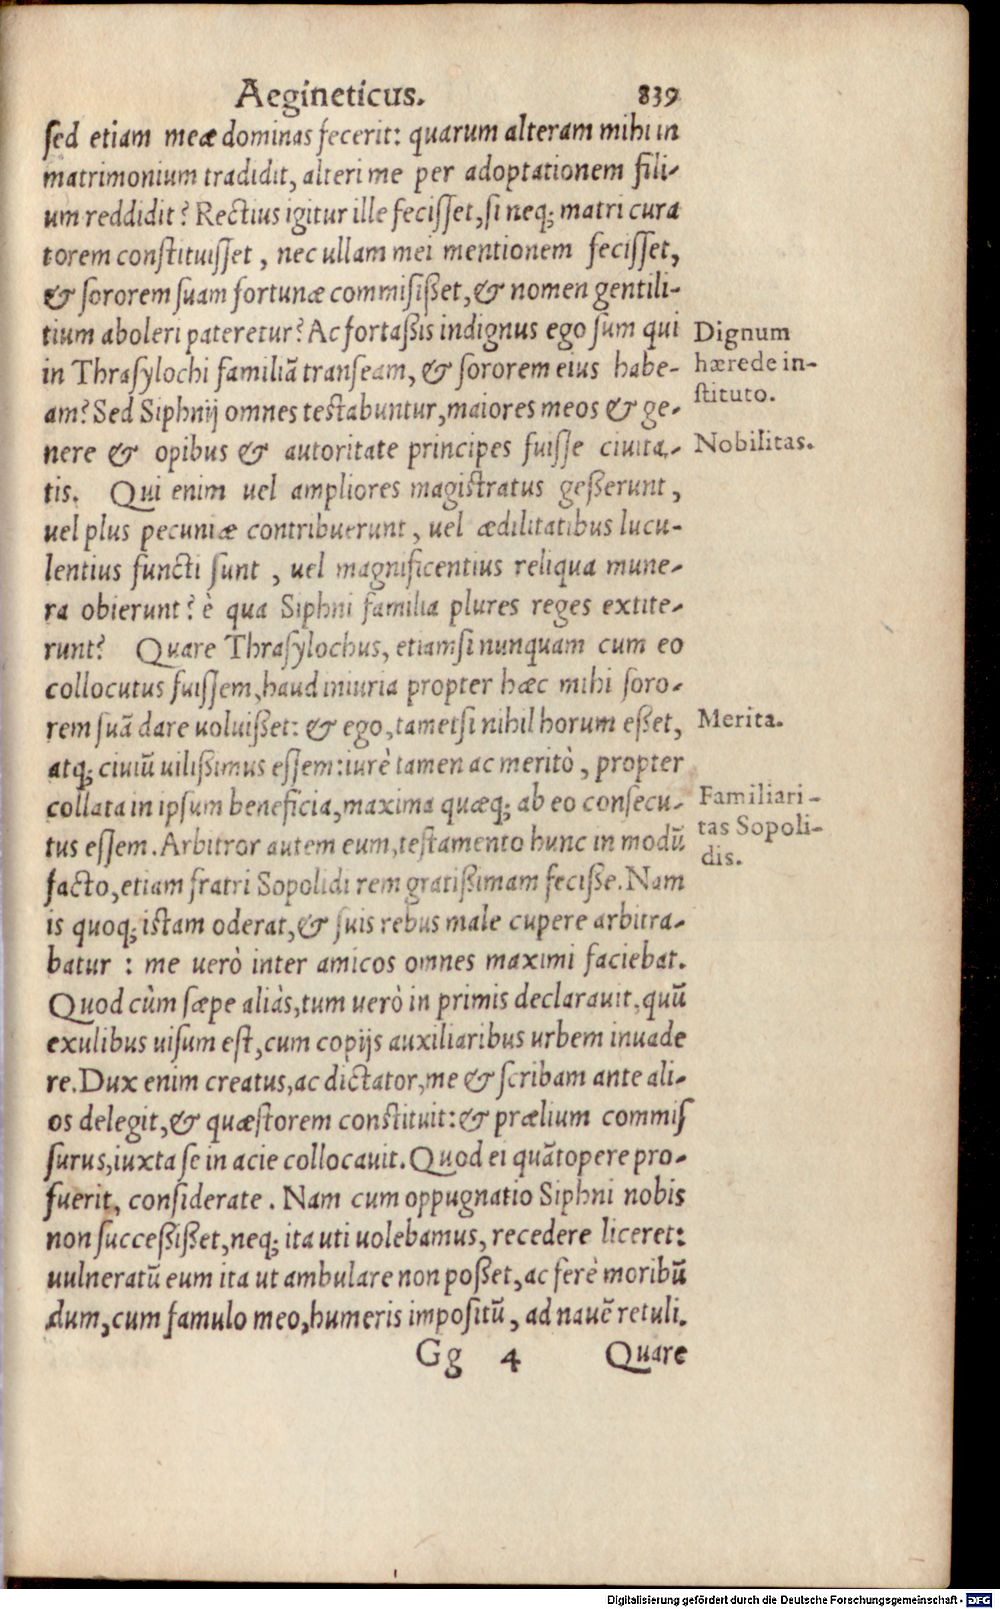 Aegineticus. 839
sed etiam meæ dominas fecerit: quarum alteram mihi in
matrimonium tradidit, alteri me per adoptationem fili-
um reddidit? Rectius igitur ille fecisset, si neq; matri cura
torem constituisset, nec ullam mei mentionem fecisset,
& sororem suam fortunæ commisißet, & nomen gentili-
tium aboleri pateretur? Ac fortaßis indignus ego sum qui
in Thrasylochi familiã transeam, & sororem eius habe-
am? Sed Siphnij omnes testabuntur, maiores meos & ge-
nere & opibus & autoritate principes fuisse ciuita-
tis. Qui enim uel ampliores magistratus geßerunt,
uel plus pecuniæ contribuerunt, uel ædilitatibus lucu-
lentius functi sunt, uel magnificentius reliqua mune-
ra obierunt? è qua Siphni familia plures reges extite-
runt? Quare Thrasylochus, etiamsi nunquam cum eo
collocutus fuissem, haud iniuria propter hæc mihi soro-
rem suã dare uoluißet: & ego, tametsi nihil horum eßet,
atq; ciuiũ uilißimus essem: iurè tamen ac meritò, propter
collata in ipsum beneficia, maxima quæq; ab eo consecu-
tus essem. Arbitror autem eum, testamento hunc in modũ
facto, etiam fratri Sopolidi rem gratißimam feciße. Nam
is quoq; istam oderat, & suis rebus male cupere arbitra-
batur: me uerò inter amicos omnes maximi faciebat.
Quod cùm sæpe aliàs, tum uerò in primis declarauit, quũ
exulibus uisum est, cum copijs auxiliaribus urbem inuade
re. Dux enim creatus, ac dictator, me & scribam ante ali-
os delegit, & quæstorem constituit: & prælium commis
surus, iuxta se in acie collocauit. Quod ei quãtopere pro-
fuerit, considerate. Nam cum oppugnatio Siphni nobis
non succeßißet, neq; ita uti uolebamus, recedere liceret:
uulneratũ eum ita ut ambulare non poßet, ac ferè moribũ
dum, cum famulo meo, humeris impositũ, ad nauẽ retuli.
Gg 4 Quare
Dignum
hærede in-
stituto.
Nobilitas.
Merita.
Familiari-
tas Sopoli-
dis.
Digitalisierung gefördert durch die Deutsche Forschungsgemeinschaft - DFG